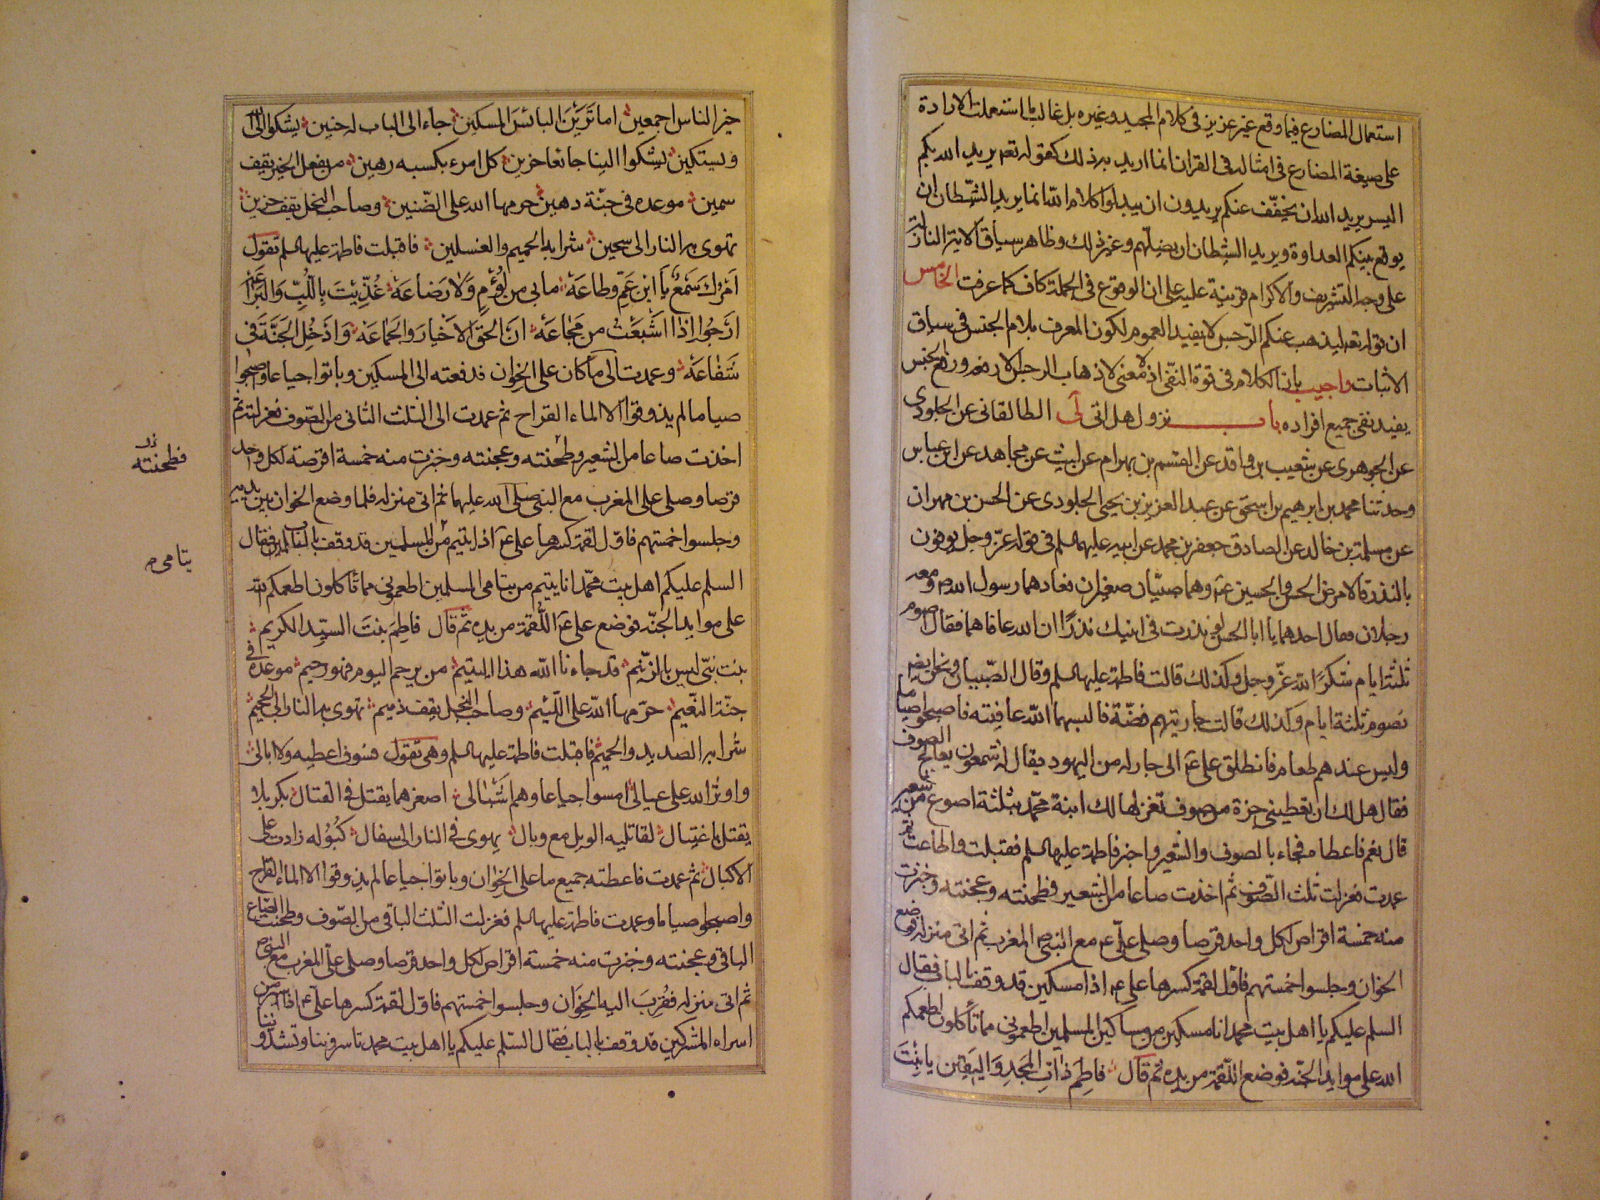 استعمال المضارع فيما وقع غير عزيز في كلام المجيد وغيره بل غالب ما استعملت الارادة
على صيغة المضارع في امثاله في القران انما اريد به ذلك كقوله تعم يريد الله بكم
اليسر يريد الله ان يخفّف عنكم يريدون ان يبدلوا كلام الله انما يريد الشيطان ان
يوقع بينكم العداوة ويريد الشيطان ان يضلّهم وغير ذلك وظاهر سياق الاية النازلة
على وجه التشريف والاكرام قرينة عليه على ان الوقوع في الجملة كاف كما عرفت الخامس
ان قوله تعم ليذهب عنكم الرّجس لا يفيد العموم لكون المعرف بلام الجنس في سياق
الاثبات واجيب بان الكلام في قوة النفي اذ لا معنى لاذهاب الرجس الا رفعه ورفع الجنس
يفيد نفي جميع افراده باب نزول هل اتى لى الطالقاني عن الجلودي
عن الجوهري عن شعيب بن واقد عن القسم بن بهرام عن ليث عن مجاهد عن ابن عباس
وحدثنا محمد بن ابرهيم بن اسحق عن عبد العزيز بن يحيى الجلودي عن الحسن بن مهران
عن مسلمة بن خالد عن الصادق جعفر بن محمد عن ابيه عليهما لسلم في قوله عزّ وجل يوفون
بالنذر قالا مرض الحسن والحسين عم وهما صبيّان صغيران فعادهما رسول الله ص ومعه
رجلان فقال احدهما يا ابا الحسن لو نذرت في ابنيك نذرًا ان الله عافاهما فقال اصوم
ثلثة ايام شكرًا لله عزّ وجل وكذلك قالت فاطمة عليها لسلم وقال الصّبيان ونحن ايضا
نصوم ثلثة ايام وكذلك قالت جاريتهم فضّة فالبسهما الله عافيته فاصبحوا صياما
وليس عندهم طعام فانطلق علي عم الى جار له من اليهود يقال له شمعون يعالج الصوف
فقال هل لك ان تعطيني جزة من صوف تغزلها لك ابنة محمّد بثلثة اصوع من شعير
قال نعم فاعطاه فجاء بالصوف والشعير واخبر فاطمة عليها لسلم فقبلت واطاعت ثم
عمدت فغزلت ثلث الصّوف ثم اخذت صاعا من الشعير فطحنته وعجنته وخبزت
منه خمسة اقراص لكل واحد قرصا وصلى علّي عم مع النبي ص المغرب ثم اتى منزله فوضع
الخوان وجلسوا خمستهم فاول لقمة كسرها علي عم اذا مسكين قد وقف بالباب فقال
السلم عليكم يا اهل بيت محمد انا مسكين من مساكين المسلمين اطعموني مما تأكلون اطعمكم
الله على موايد الجنّة فوضع اللّقمة من يده ثم قال فاطم ذات المجد واليقين يا بنت
خير الناس اجمعين اما ترين البائس المسكين جاء الى الباب له حنين يشكو الى الله
ويستكين يشكوا الينا جائعا حزين كل امرء بكسبه رهين من يفعل الخير يقف
سمين موعده في جنّة دهين حرمها الله على الضّنين وصاحب البخل يقف حزين
تهوى به النار الى سجين شرابه الحميم والغسلين فاقبلت فاطمة عليها لسلم تقول
امرك سمع يا ابن عم وطاعة ما بي من لؤم ولا رضاعة غذّيت باللّب وبالبراعة
ارجوا اذا اشبعت من مجاعة ان الحق الاخيار والجماعة وادخل الجنّة في
شفاعة وعمدت الى ما كان على الخوان فدفعته الى المسكين وباتوا جياعا واصبحوا
صياما لم يذوقوا الا الماء القراح ثم عمدت الى الثلث الثاني من الصّوف فغزلته ثم
اخذت صاعا من الشعير وطحنته وعجنته وخبزت منه خمسة اقرصة لكل واحد
قرصا وصلى علي المغرب مع النبي صلى الله عليهما ثم اتى منزله فلما وضع الخوان بين يديه
وجلسوا خمستهم فاول لقمة كسرها علي عم اذا يتيم من المسلمين قد وقف بالباب فقال
السلم عليكم اهل بيت محمّد انا يتيم من يتامى المسلمين اطعموني مما تأكلون اطعمكم الله
على موايد الجنّة فوضع علي عم اللّقمة من يده ثم قال فاطم بنت السيّد الكريم
بنت نبيّ ليس بالزّنيم قد جاءنا الله هذا اليتيم من يرحم اليوم فهو رحيم موعده في
جنّة النعيم حرمها الله على اللّئيم وصاحب البخل يقف ذميم تهوى به النار الى الجحيم
شرابه الصديد والحميم فاقبلت فاطمة عليها لسلم وهي تقول فسوف اعطيه ولا ابالي
واوثر الله على عيالي امسوا جياعا وهم اشبالى اصغرهما يقتل في القتال بكربلا
يقتل باغتيال لقاتليه الويل مع وبال يهوى في النار الى سفال كبوله زادت على
الاكبال ثم عمدت فاعطته جميع ما على الخوان وباتوا جياعا لم يذوقوا الا الماء القراح
واصبحوا صياما وعمدت فاطمة عليها لسلم فغزلت الثلث الباقي من الصّوف وطحنت الصّاع
الباقي وعجنته وخبزت منه خمسة اقراص لكل واحد قرصا وصلى علّي المغرب مع النبي ص
ثم اتى منزله فقرب اليه الخوان وجلسوا خمستهم فاوّل لقمة كسرها علّي عم اذا اسير من
اسراء المشركين قد وقف بالباب فقال السّلم عليكم يا اهل بيت محمد تاسروننا وتشدّو
فطحنته
يتامى